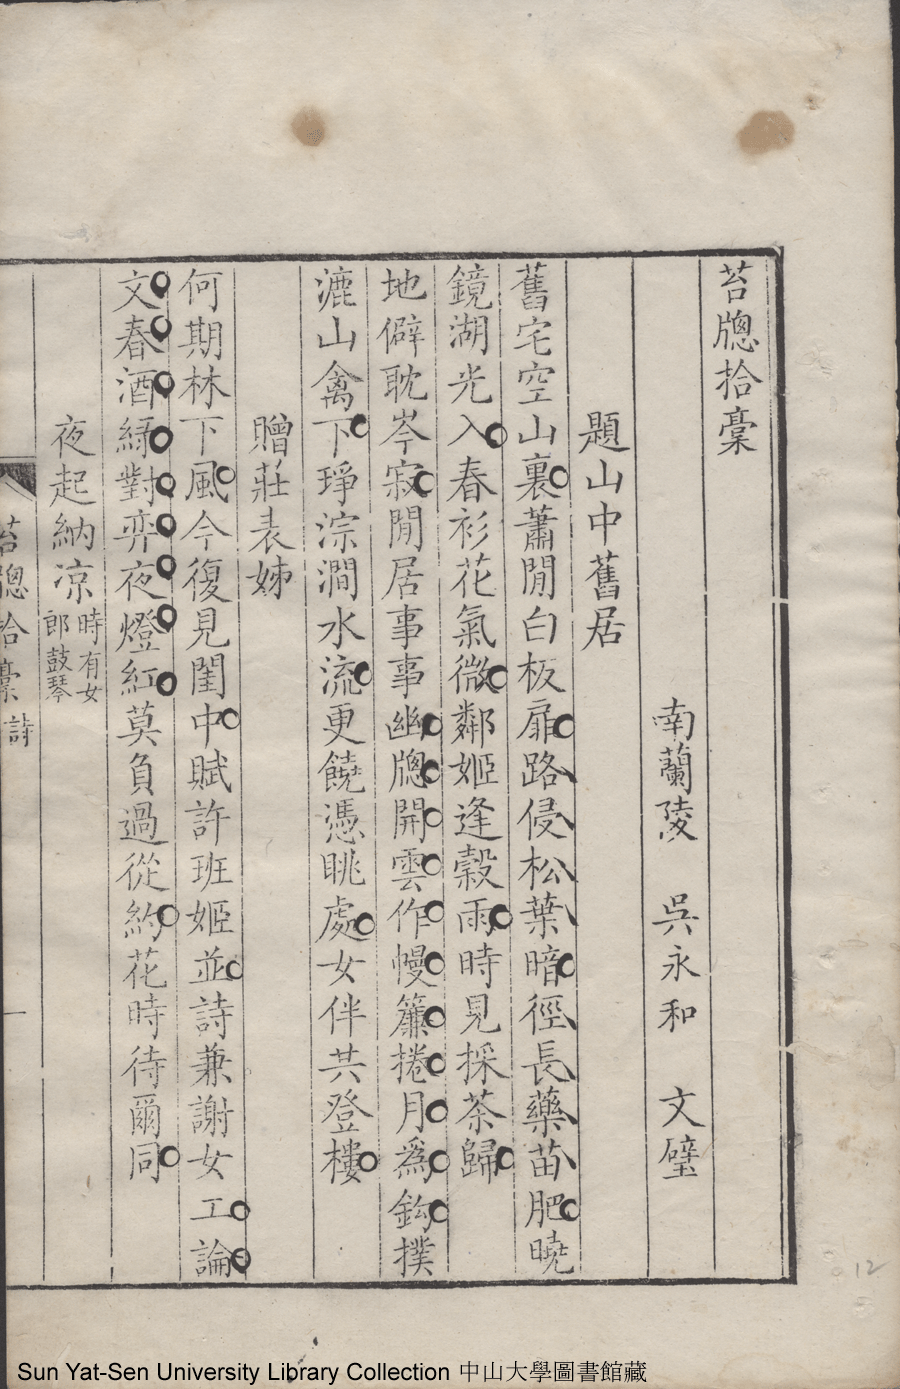 苔牕拾稾
南蘭陵 吳永和 文璧
題山中舊居
舊宅空山裏蕭閒白板扉路侵松葉暗徑長藥苗肥曉
鏡湖光入春衫花氣微鄰姬逢穀雨時見採茶歸
地僻耽岑寂閒居事事幽牕開雲作幔簾捲月爲鈎撲
漉山禽下琤淙澗水流更饒憑眺處女伴共登樓
贈莊表姊
何期林下風今復見閨中賦許班姬並詩兼謝女工論
文春酒綠對弈夜燈紅莫負過從約花時待爾同
夜起納凉時有女
郎鼓琴
苔牕拾稾 詩
一
12
Sun Yat-Sen University Library Collection 中山大學圖書館藏